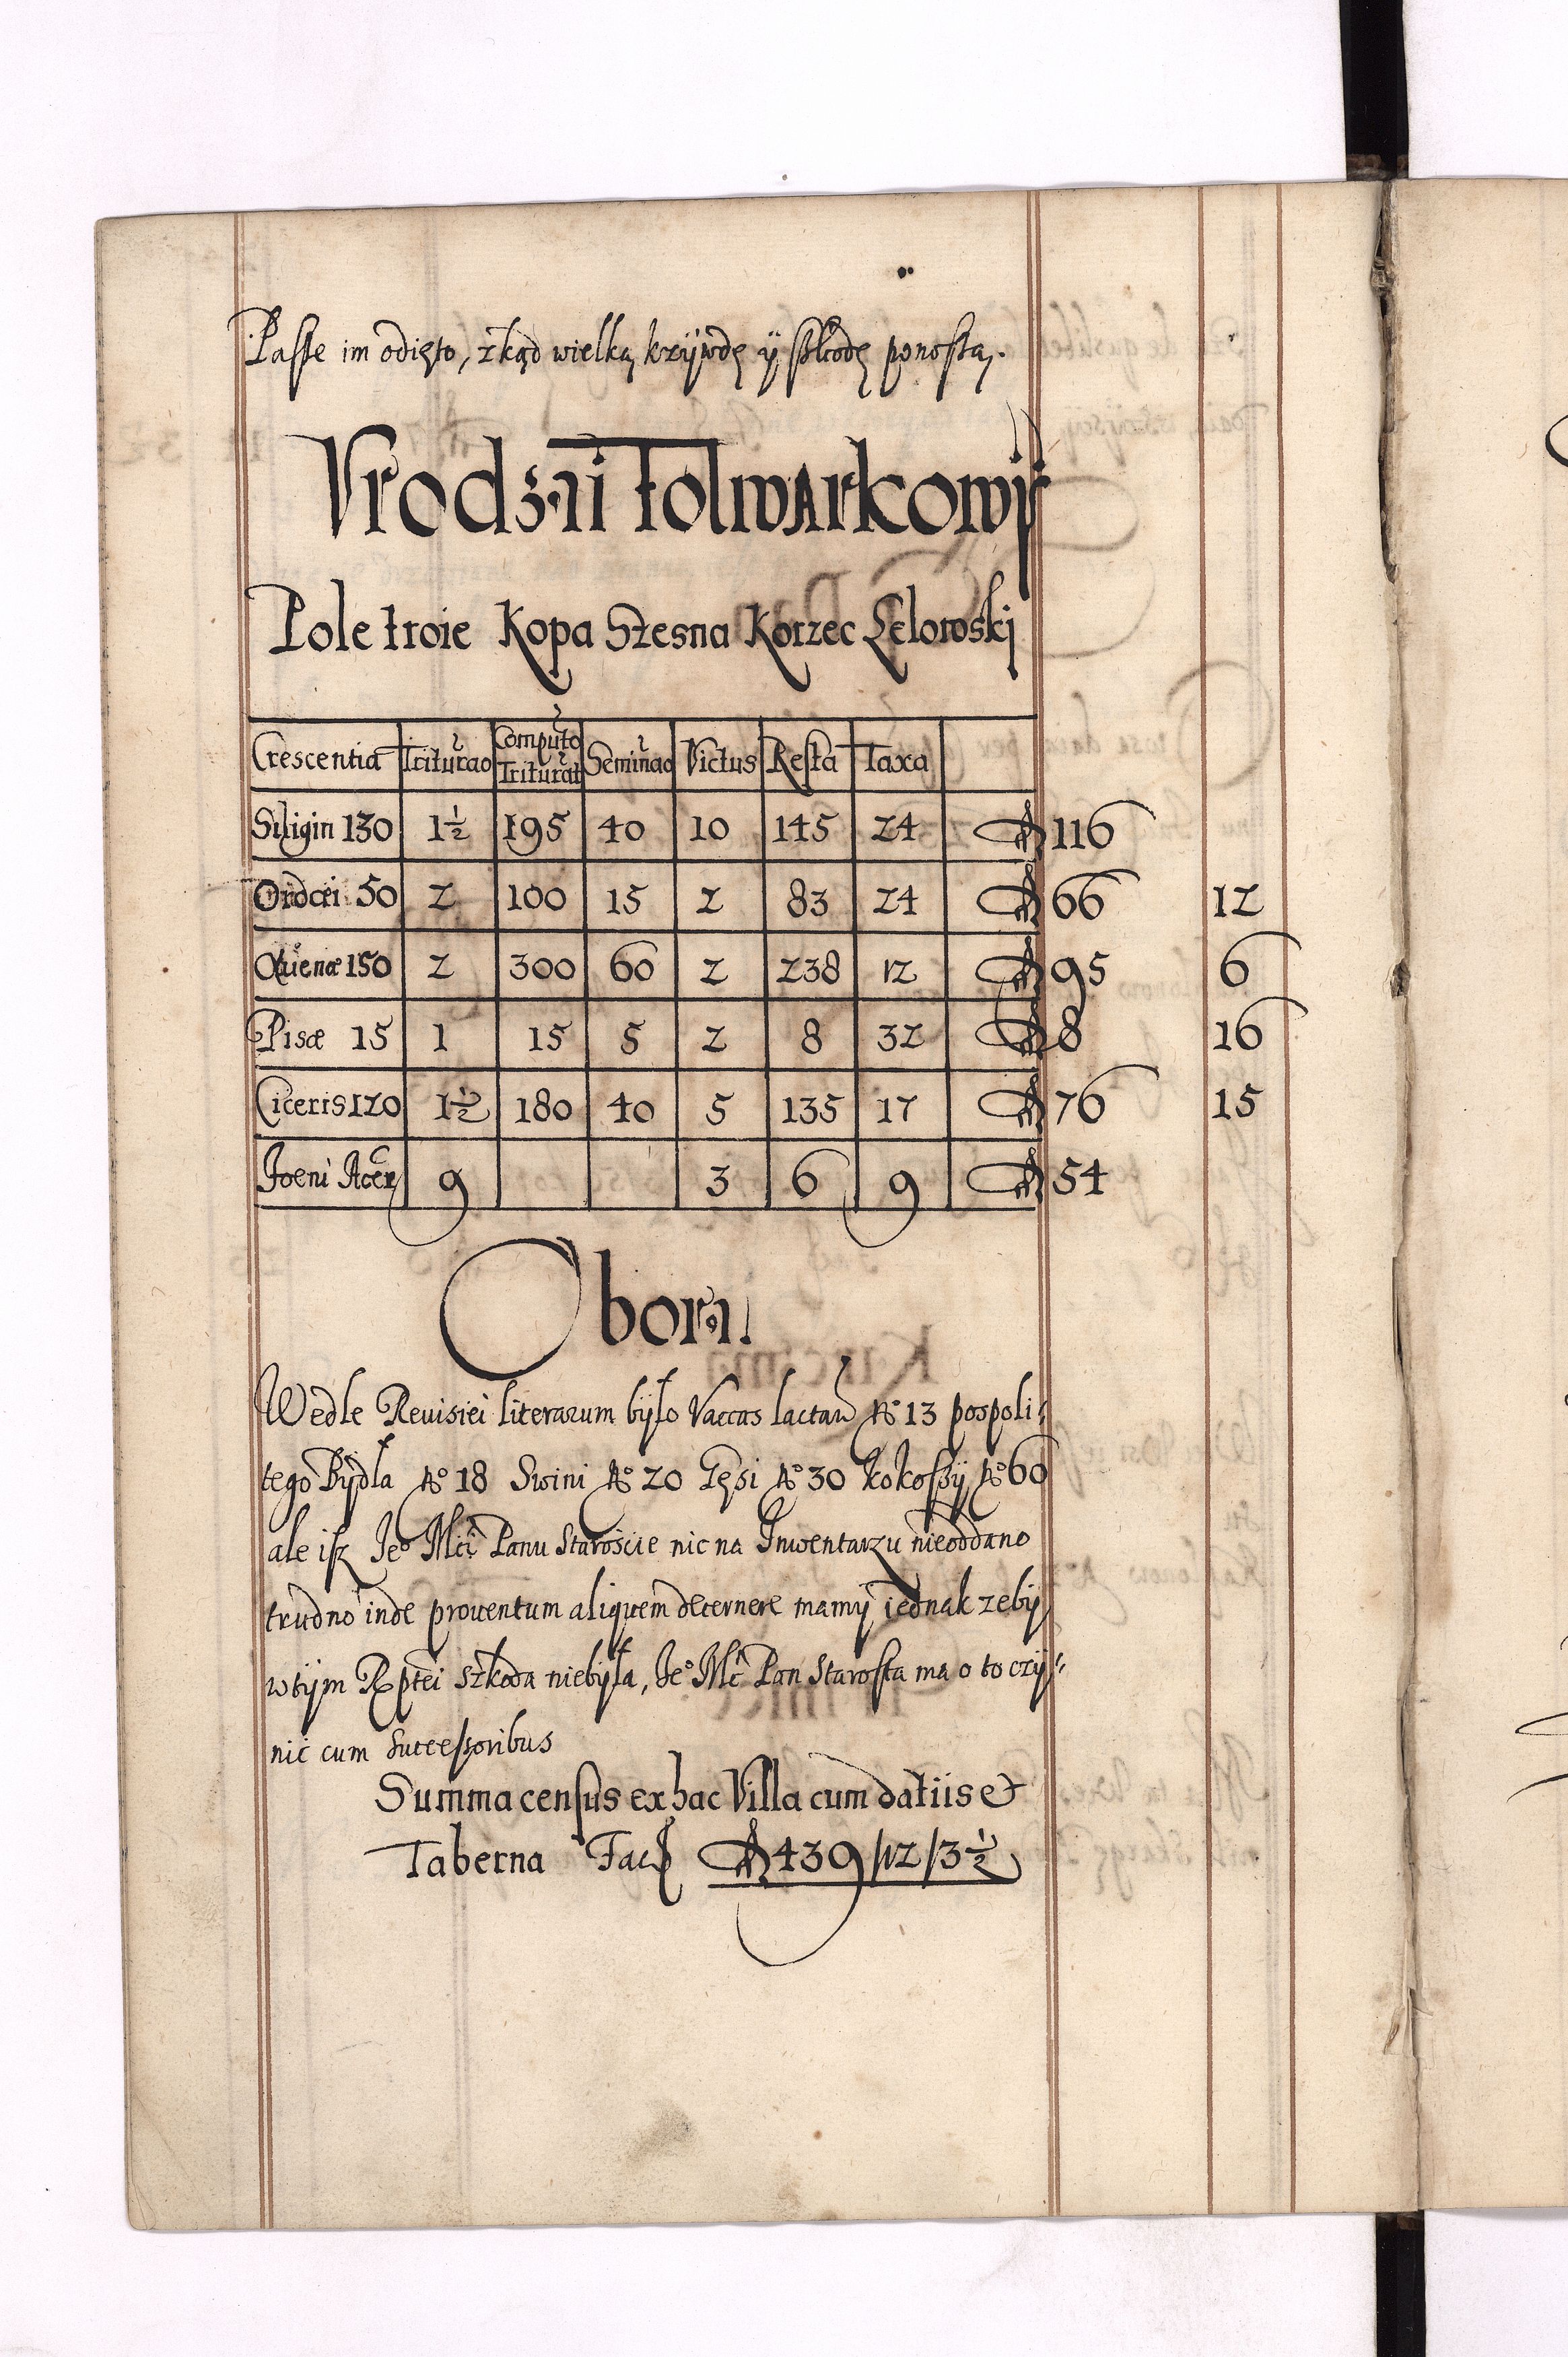 Passe im odięto, zkąd wielką krzÿwdę ÿ szkodę ponoszą.
Vrodzai Folwarkowÿ
Pole troie Kopa Szesna Korzec Lelowski
Crescentia Triturao Computo Triturat Seminao Victus Resta Taxa
Siligin 130 1½ 195 40 10 145 24 fl 116
Ordei 50 2 100 15 2 83 24 fl 66 12
Auenæ 150 2 300 60 2 238 12 fl 95 6
Pisæ 15 1 15 5 2 8 32 fl 8 16
Ciceris 120 1½ 180 40 5 135 17 fl 76 15
Foeni Acer 9 3 6 9 fl 54
Obora.
Wedle Reuisiei literarum bÿło Vaccas lactan No 13 pospoli:
tego Bÿdła No 18 Swini No 20 Gęsi No 30 kokoszÿ No 60
ale isz Jeo Mci Panu Staroscie nic na Inwentarzu nieoddano
trudno inde prouentum aliquem decernere mamÿ iednak zebÿ
wtÿm Rptei szkoda niebÿła, Jeo Mc Pan Starosta ma o to czÿ:
nic cum Successoribus
Summa census ex hac Villa cum datiis et
Taberna Facit fl 439/12/3½